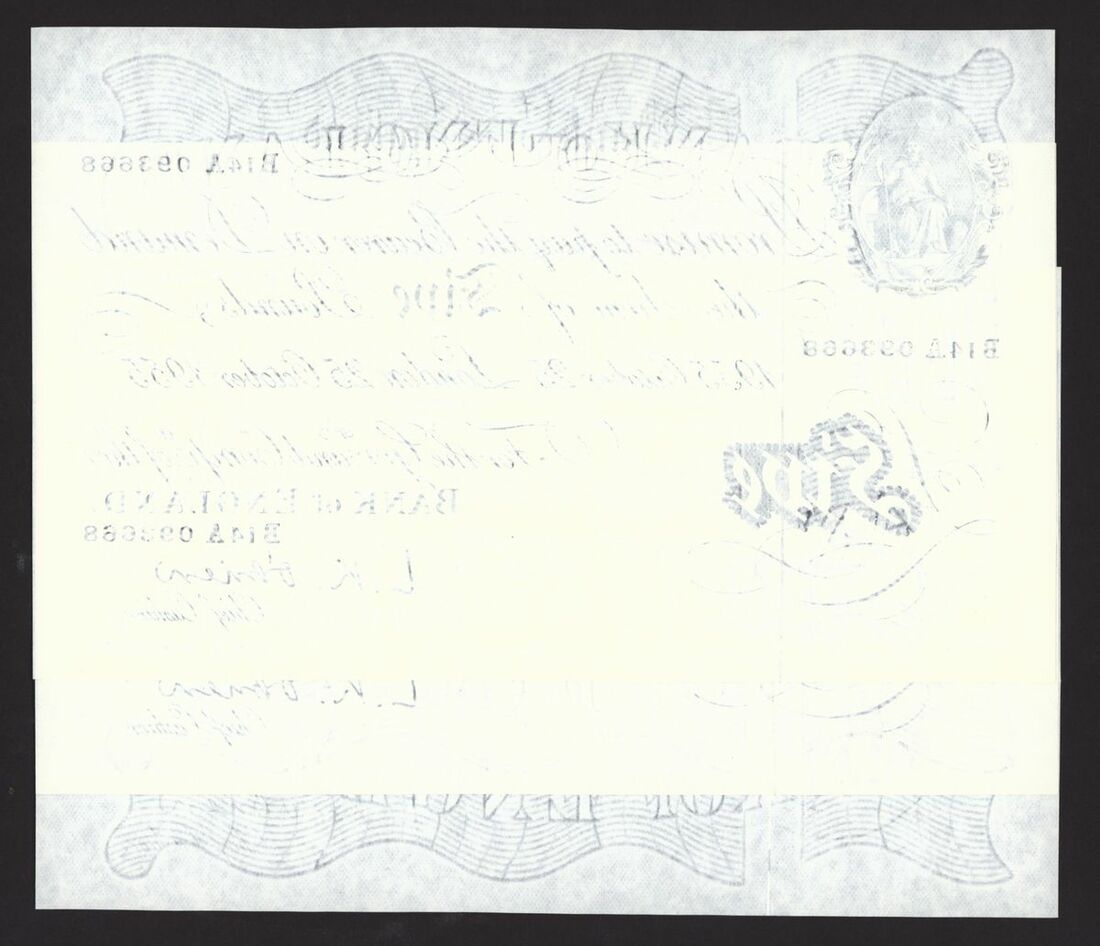 B14A 093668
Promise to pay the Bearer on Demand
the Sum of Five Pounds
B14A 093668
1955 October 25 London 25 October 1955
For the Gov.r and Comp.a of the
Five
BANK of ENGLAND.
B14A 093668
L. K. O'Brien
Chief Cashier
L. K. O'Brien
Chief Cashier